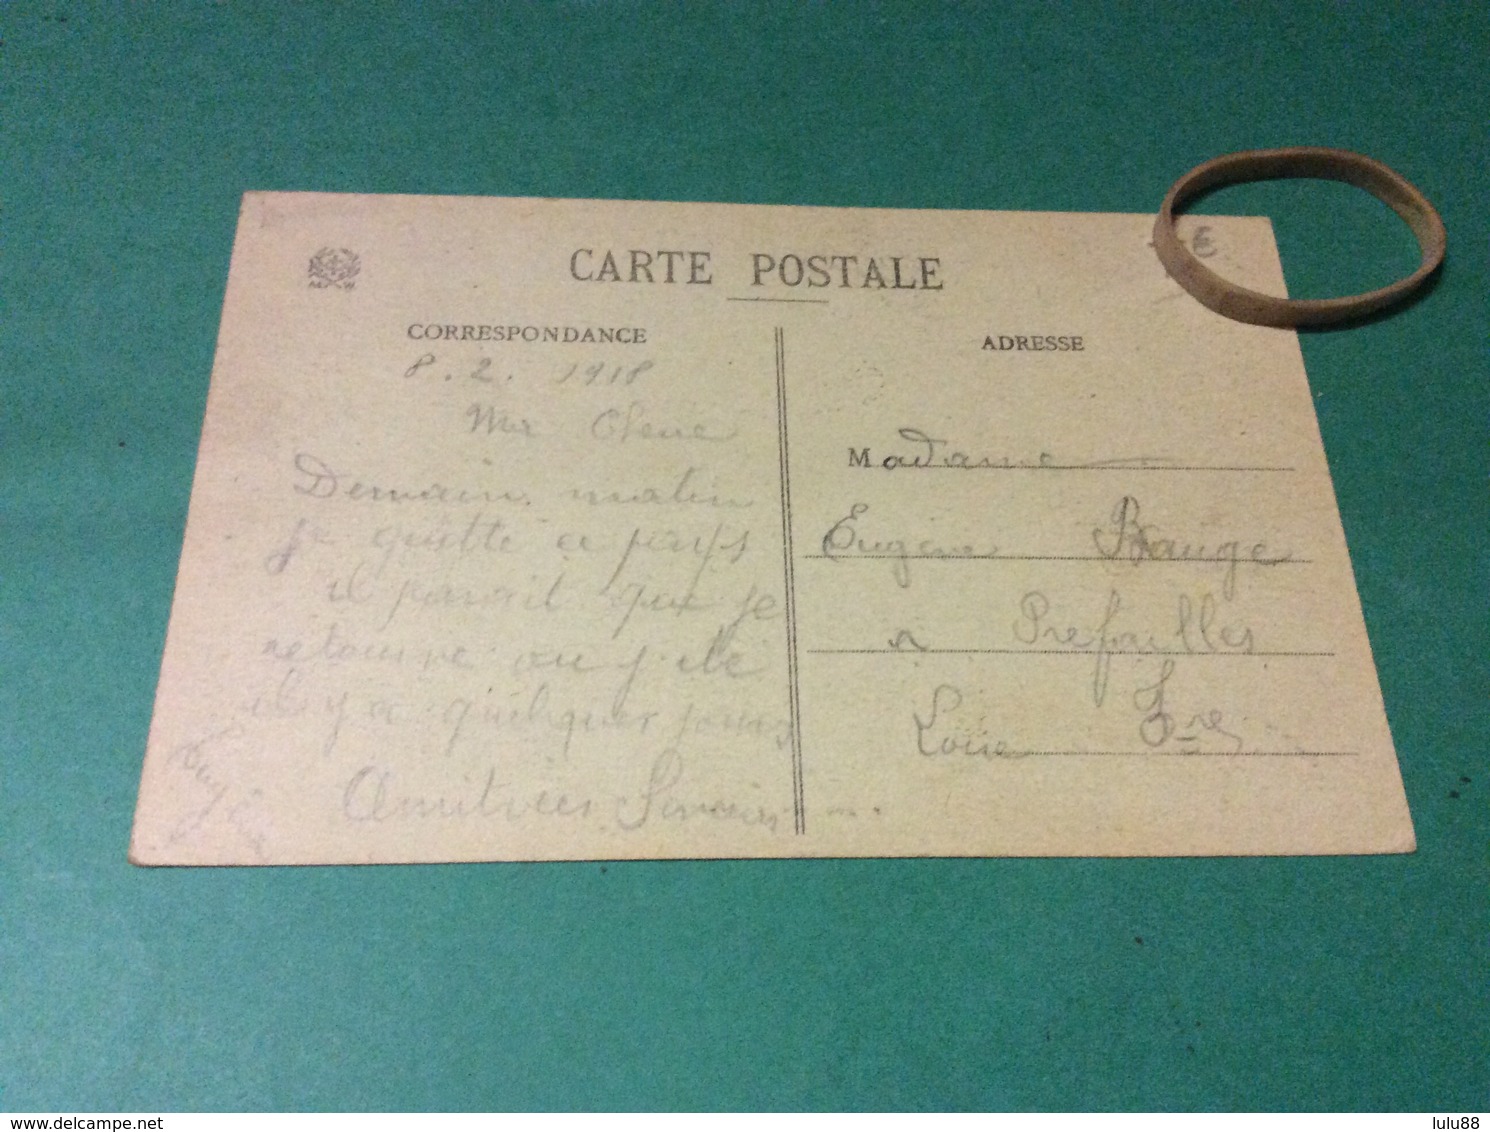 CARTE POSTALE
CORRESPONDANCE
8.2.1918
Ma Chérie
Demain matin
je quitte ce pays
il parait que je
retourne ou j'ete
il y a quelques jours
Amitiées Sincères
ADRESSE
Madame
Eugène Bauge
a Prefailles
Loire Fre
delcampe.net
lulu88